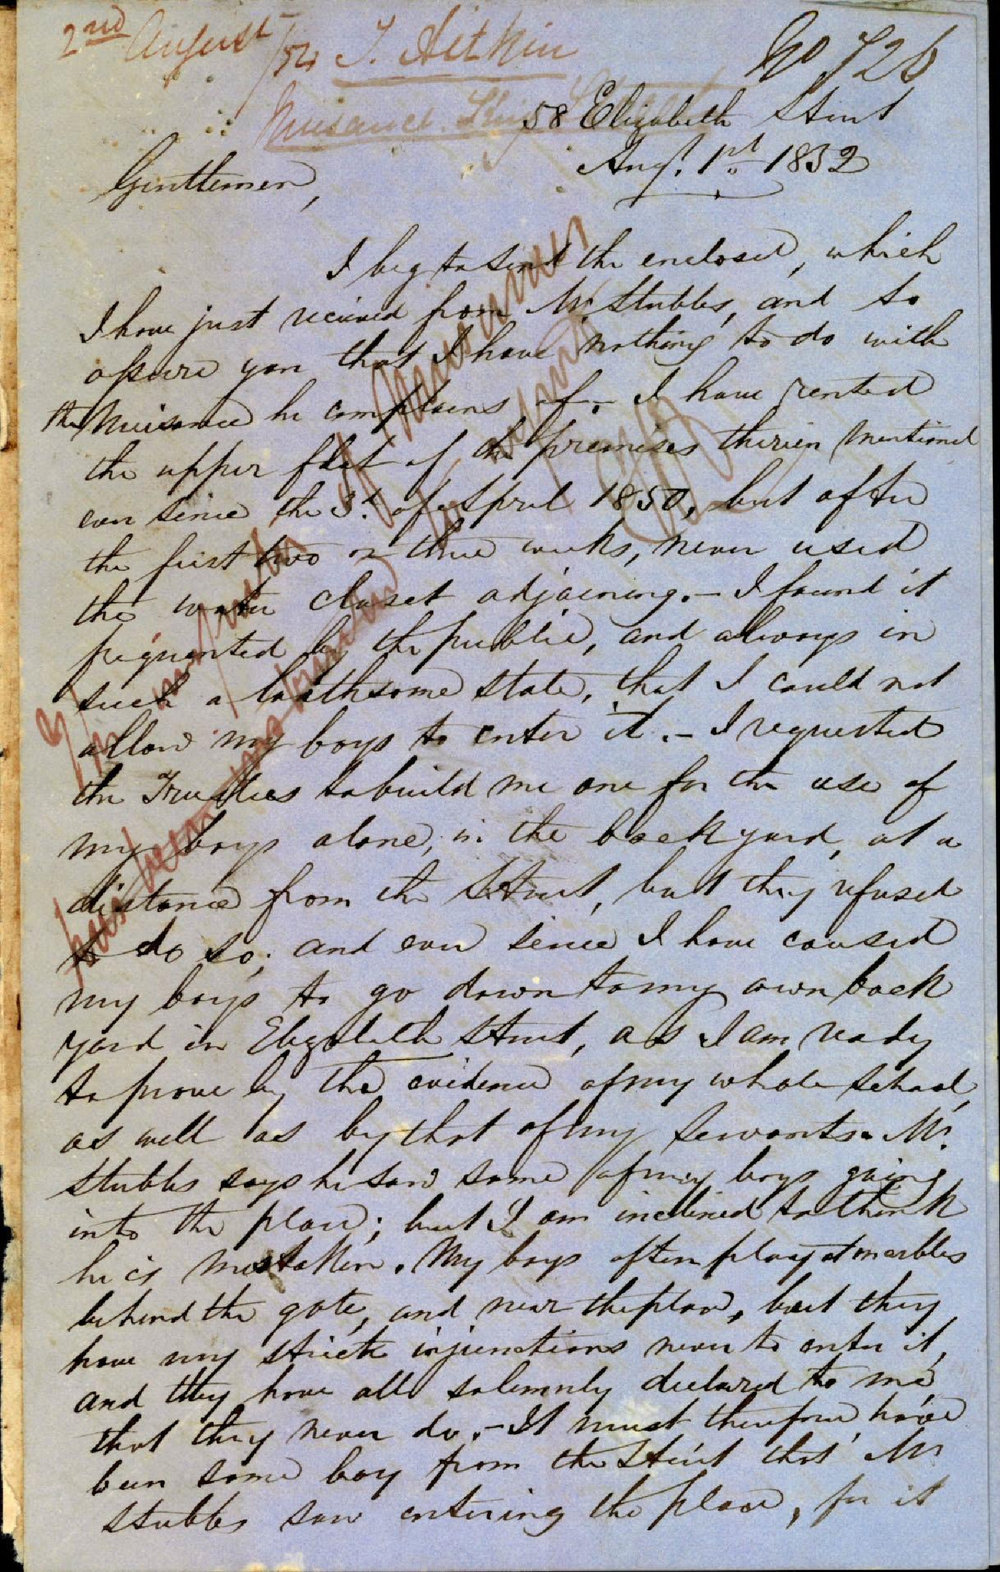 2nd August /52 J. Aitkin No 726
Nuisance King Street
58 Elizabeth Street
Augt. 1st 1852
Gentlemen,
I beg to send the enclosed, which
I have just received from Mr. Stubbs, and to
assure you that I have nothing to do with
the Nuisance he complains of.- I have rented
the upper flat of the premises therein mentioned
ever since the 3d. of April 1850, but after
the first two or three weeks, never used
the water closet adjoining.- I found it
frequented by the public, and always in
such a loathsome state, that I could not
allow my boys to enter it.- I requested
the Trustees to build me one for the use of
my boys alone, in the back yard, at a
distance from the Street, but they refused
to do so; and ever since I have caused
my boys to go down to my own back
yard in Elizabeth Street, as I am ready
to prove by the evidence of my whole school,
as well as by that of my servants. Mr.
Stubbs says he saw some of my boys going
into the place; but I am inclined to think
he is mistaken. My boys often play at marbles
behind the gate, and near the place, but they
have my strict injunctions never to enter it,
and they have all solemnly declared to me
that they never do.- It must therefore have
been some boy from the Street that Mr
Stubbs saw entering the place, for it